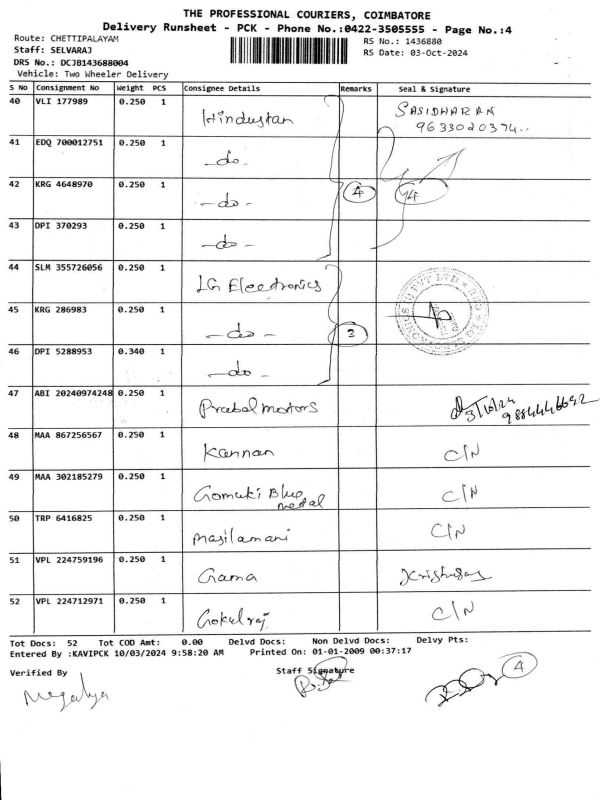 THE PROFESSIONAL COURIERS, COIMBATORE
Delivery Runsheet - PCK - Phone No.:0422-3505555 - Page No.:4
Route: CHETTIPALAYAM
RS No.: 1436880
Staff: SELVARAJ
RS Date: 03-Oct-2024
DRS No.: DCJB143688004
Vehicle: Two Wheeler Delivery
S No Consignment No Weight PCS Consignee Details Remarks Seal & Signature
40 VLI 177989 0.250 1 Hindustan SASIDHARAN
9633020374..
41 EDQ 700012751 0.250 1 -do-
42 KRG 4648970 0.250 1 -do- 4 4
43 DPI 370293 0.250 1 -do-
44 SLM 355726056 0.250 1 LG Electronics
45 KRG 286983 0.250 1 -do- 3
46 DPI 5288953 0.340 1 -do-
47 ABI 20240974248 0.250 1 Prabal motors 3/10/24
9884446692
48 MAA 867256567 0.250 1 Kannan C/N
49 MAA 302185279 0.250 1 Gomuki Blue
medal C/N
50 TRP 6416825 0.250 1 Masilamani C/N
51 VPL 224759196 0.250 1 Gama
52 VPL 224712971 0.250 1 Gokulraj C/N
Tot Docs: 52 Tot COD Amt: 0.00 Delvd Docs: Non Delvd Docs: Delvy Pts:
Entered By :KAVIPCK 10/03/2024 9:58:20 AM Printed On: 01-01-2009 00:37:17
Verified By Staff Signature
Megalya
4